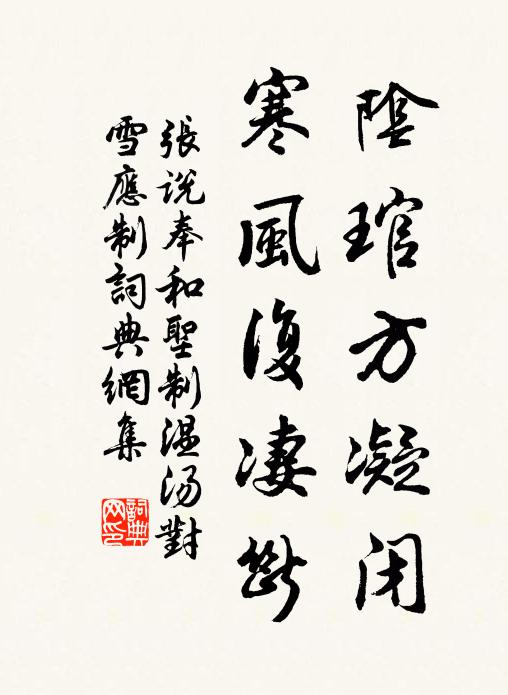 陰琯方凝閉
寒風復凄斷
張説奉和聖制温汤對
雪應制詞典網集
詞典网印